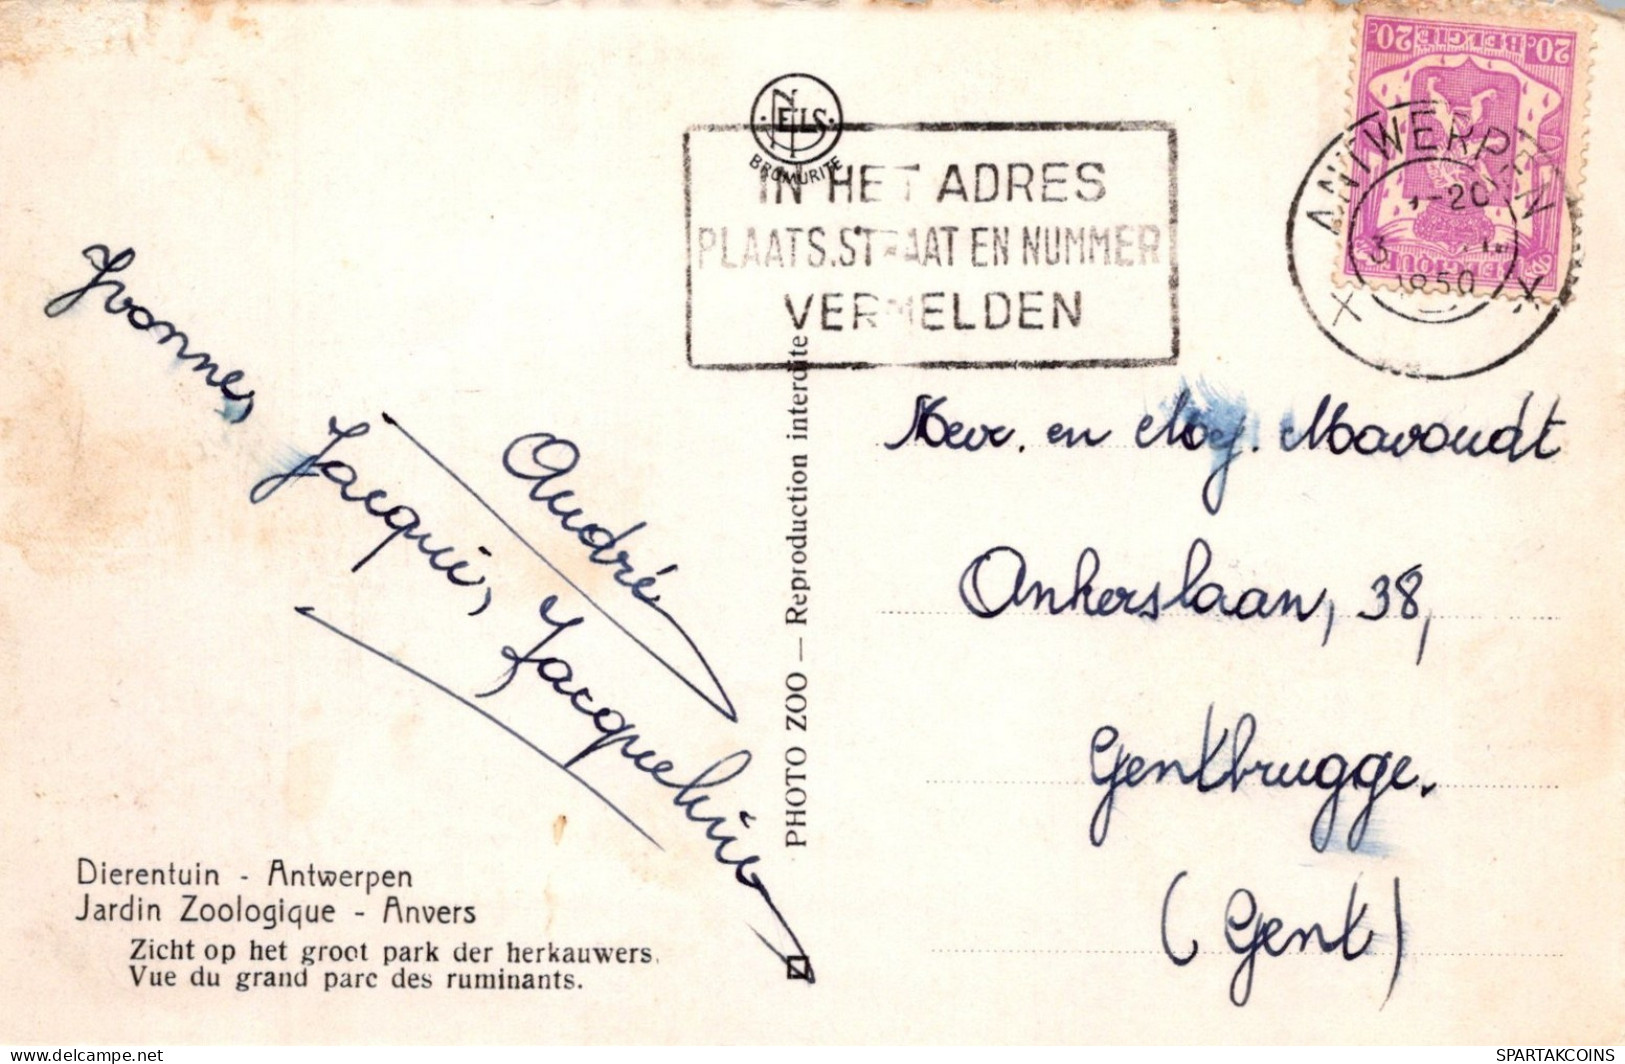 NELS
BROMURITE
IN HET ADRES
PLAATS.STRAAT EN NUMMER
VERMELDEN
20c BELGIE 20c
BELGIQUE
ANTWERPEN
X X
1950
Yvonne,
Jacqui,
André
Jacqueline
Mevr. en Moj. Mavoudt
Ankerslaan, 38,
Gentbrugge.
(Gent)
PHOTO ZOO — Reproduction interdite
Dierentuin - Antwerpen
Jardin Zoologique - Anvers
Zicht op het groot park der herkauwers.
Vue du grand parc des ruminants.
delcampe.net
SPARTAKCOINS